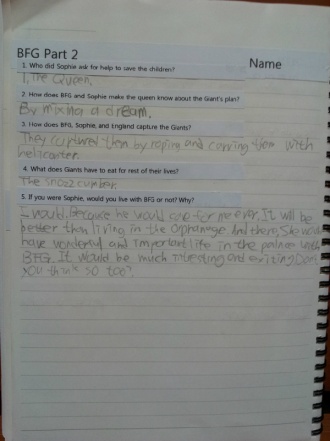 BFG Part 2
Name
1. Who did Sophie ask for help to save the children?
1, The Queen.
2. How does BFG and Sophie make the queen know about the Giant's plan?
By mixing a dream.
3. How does BFG, Sophie, and England capture the Giants?
They cuptured them by roping and carrying them with
helicopter.
4. What does Giants have to eat for rest of their lives?
The snozzcumber.
5. If you were Sophie, would you live with BFG or not? Why?
I would, because he would care for me ever. It will be
better than living in the orphanage. And there, She would
have wonderful and important life in the palace with
BFG. It would be much intresting and exiting. Don't
you think so too?